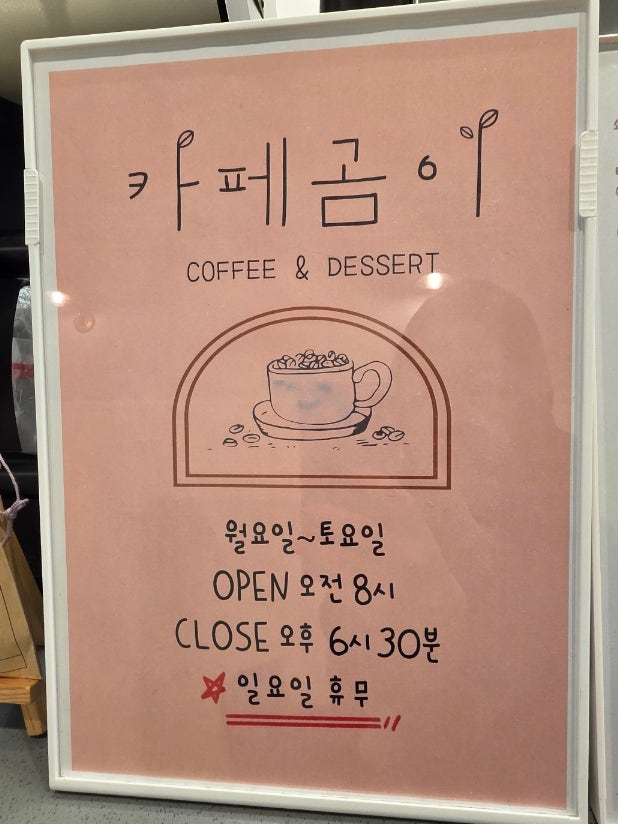 카페곰이
COFFEE & DESSERT
월요일~토요일
OPEN 오전 8시
CLOSE 오후 6시 30분
일요일 휴무